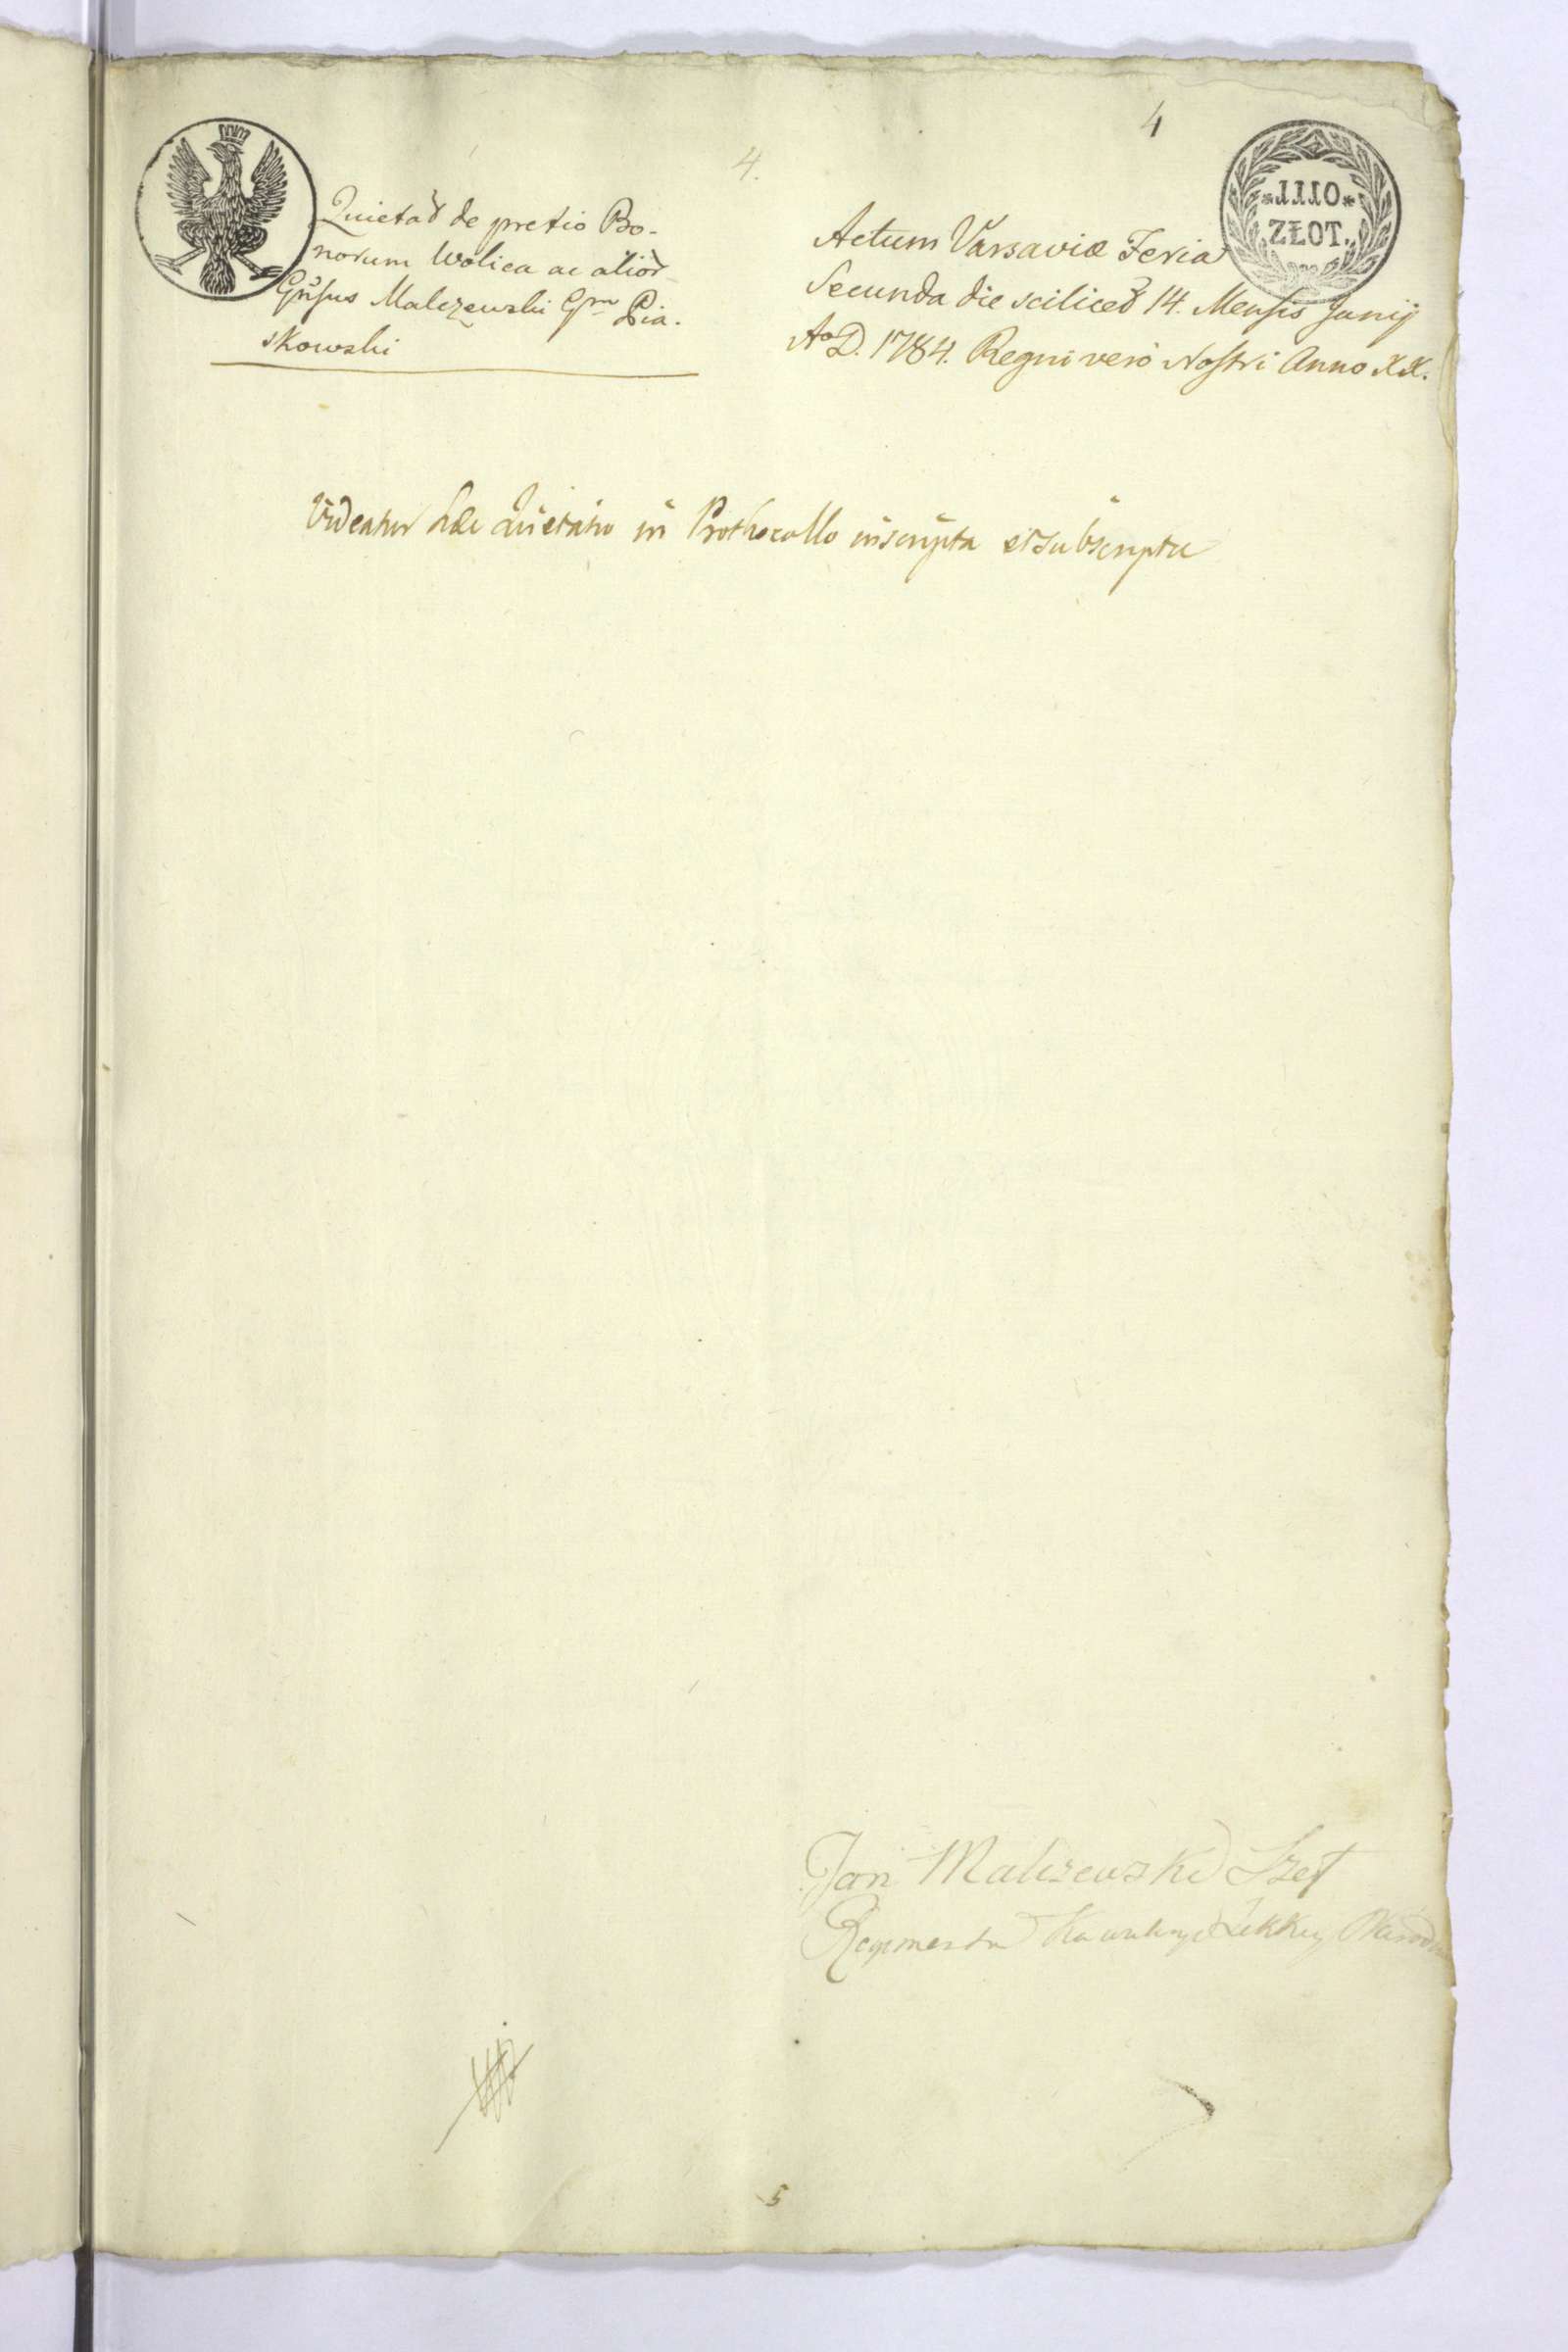 4
4.
*IIIIO*
ZŁOT.
Quietaõ de pretio Bo-
norum Wolica ac alior
Gñsus Malczewski Gm Pia-
skowski
Actum Varsaviæ Feria
Secunda die scilicet 14. Mensis Junij
Ao D. 1784. Regni vero Nostri Anno XX.
Videatur hæc Quietatio in Prothocollo inscripta et subscripta
Jan Malczewski Szef
Regimentu Kawaleryi Lekkiey Narod
5